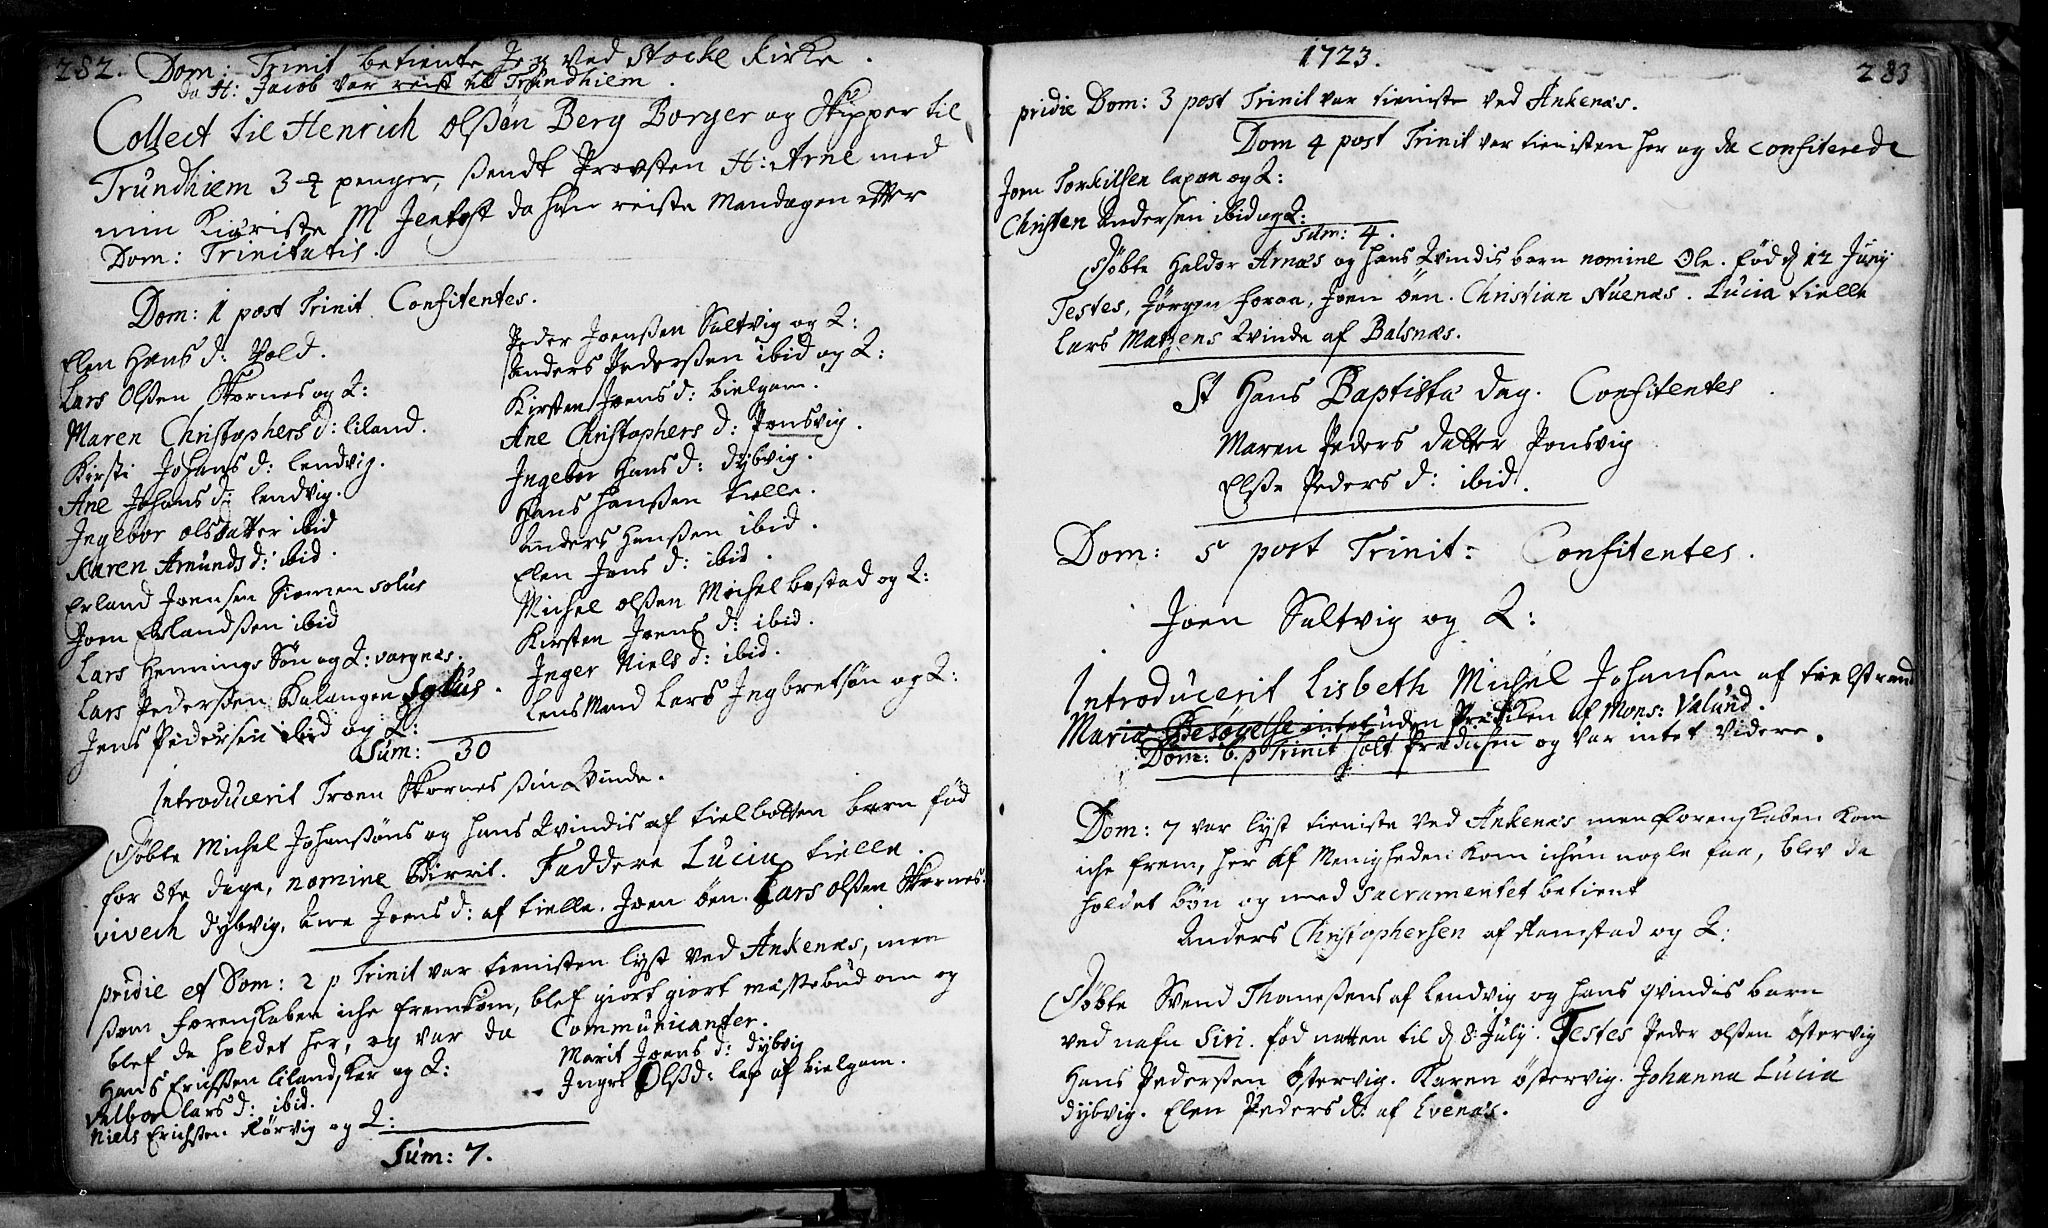 282. Dom: Trinit betiente Jeg ved Stocke Kirke.
da H: Jacob var reist til Trundhiem.
Collect til Henrich Olßen Berg Borger og Skipper til
Trundhiem 3 penger, ßendt Provsten H: Arne med
min Kiæriste M Jentoft da han reiste Mandagen efter
Dom: Trinitatis.
Dom: 1 post Trinit. Confitentes.
Elen Hans d: Vold.
Lars Olßen Skornes og Q:
Maren Christophers d: Liland.
Kirsti Johans d: Lendvig.
Ane Johans d: Lendvig.
Ingebor Olsdatter ibid
Karen Amunds d: ibid.
Erland Joensen solus
Joen Erlandßen ibid
Lars Hennings Søn og Q: vargnæs.
Lars Pedersen Balangen solus.
Jens Pedersen ibid og Q:
Peder Joenßen Saltvig og Q:
Anders Pederßen ibid og Q:
Kirsten Joens d: bielgam.
Ane Christophers d: Ponsvig.
Ingebor Hans d: dybvig.
Hans Hanßen Tielle.
Anders Hanßen ibid.
Elen Jens d: ibid.
Michel Olßen Michelbostad og Q:
Kirsten Joens d: ibid.
Inger Niels d: ibid.
Lensmand Lars Ingbretsøn og Q:
Sum: 30
Introducerit Troen Skornes ßin Qvinde.
Døbte Michel Johanßøns og hans Qvindis af tielbotten barn fød
for 8te dage, nomine Birrit. Faddere Lucia tielle.
vivech dybvig, Ane Joens d: af tielle. Joen Øen. Lars Olßen Skornes.
pridie et Dom: 2 p Trinit var tienisten lyst ved Ankenæs, men
ßom forenskaben iche fremkom, blef giort giort messebud om og
blef da holdet her, og var da Communicanter.
Hans Erichßen Lilandsker og Q:
Valbor Lars d: ibid.
Niels Erichßen Rørvig og Q:
Marit Joens d: dybvig
Ingrs Olßd: lap af bielgam.
Sum: 7.
1723.
283
pridie Dom: 3 post Trinit var tieniste ved Ankenæs.
Dom 4 post Trinit var tienisten her og da confiterede
Joen Torkilsen og Q:
Christen Andersen ibid og Q:
Sum: 4.
Døbte Haldor Arnæs og hans Qvindis barn nomine Ole. fød d 12 Junij
Testes, Jørgen, Joen Øen. Christian Stuenæs. Lucia tielle
Lars Matzens Qvinde af Balsnæs.
St Hans Baptistæ dag. Confitentes
Maren Peders datter Ponsvig
Elße Peders d: ibid.
Dom: 5 post Trinit: Confitentes.
Joen Saltvig og Q:
Introducerit Lisbeth Michel Johansen af tielstrand
Mariæ Besøgelse intet uden Prædiken af Mons: Valund.
Dom: 6. p Trinit holt Prædiken og var intet videre.
Dom: 7 var lyst tieniste ved Ankenæs men forenskaben kom
iche frem, her af Menigheden kom ichun nogle faa, blev da
holdet bøn og med Sacramentet betient
Anders Christophersen af Ramstad og Q:
Døbte Svend Thomeßens af Lendvig og hans qvindis barn
ved nafn Siri. fød natten til d 8. Julij. Testes Peder Olßen Østervig
Hans Pederßen Østervig. Karen Østervig. Johanna Lucia
dybvig. Elen Peders d: af Evenæs.